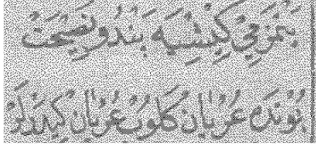 يتمزمي كيشيه پند و نصيحت
بونده عريان كلوب عريان كيدرلر